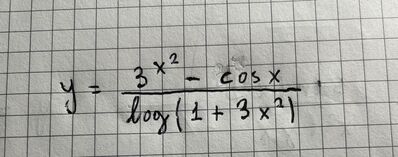 y = \frac{3^{x^2} - \cos x}{\log(1 + 3x^2)}